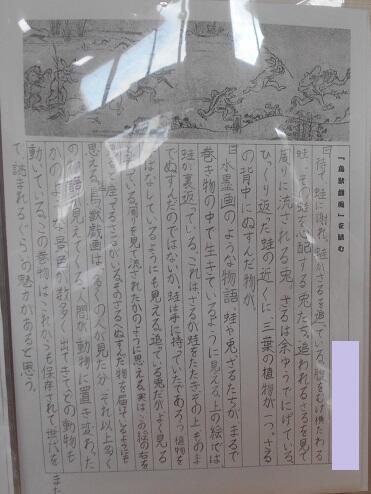 『鳥獣戯画』を読む
待て、蛙に謝れ。蛙がさるを追っている。腹をむけ横たわる
蛙、その蛙を心配する兎たち。追われるさるを見て
周りに流される兎。さるは余ゆうでにげている。
ひっくり返った蛙の近くに、三葉の植物が一つ。さる
の背中にぬすんだ物が。
水墨画のような物語。蛙や兎、さるたちが、まるで
巻き物の中で生きているように見える。上の絵では
蛙が裏返っている。これは、さるが蛙をたたきその上ものま
でぬすんだのではないか。蛙は手に持っていたであろう植物を
はなしているようにも見える。追っている兎だが、よく見る
周りを見て流されたかのように思える。実はこの絵の右を
座ってるさるがいる。そのさるへぬすんだ物を届けているようにも
思える。鳥獣戯画は多くの人が見た分、それ以上多く
の物語が見えてくる。人間が動物に置き変わった
かのような景色が数多く出てきて、どの動物も
動いている。この巻物は、これからも保存されて世代をまた
で、読まれるぐらいの魅力があると思う。